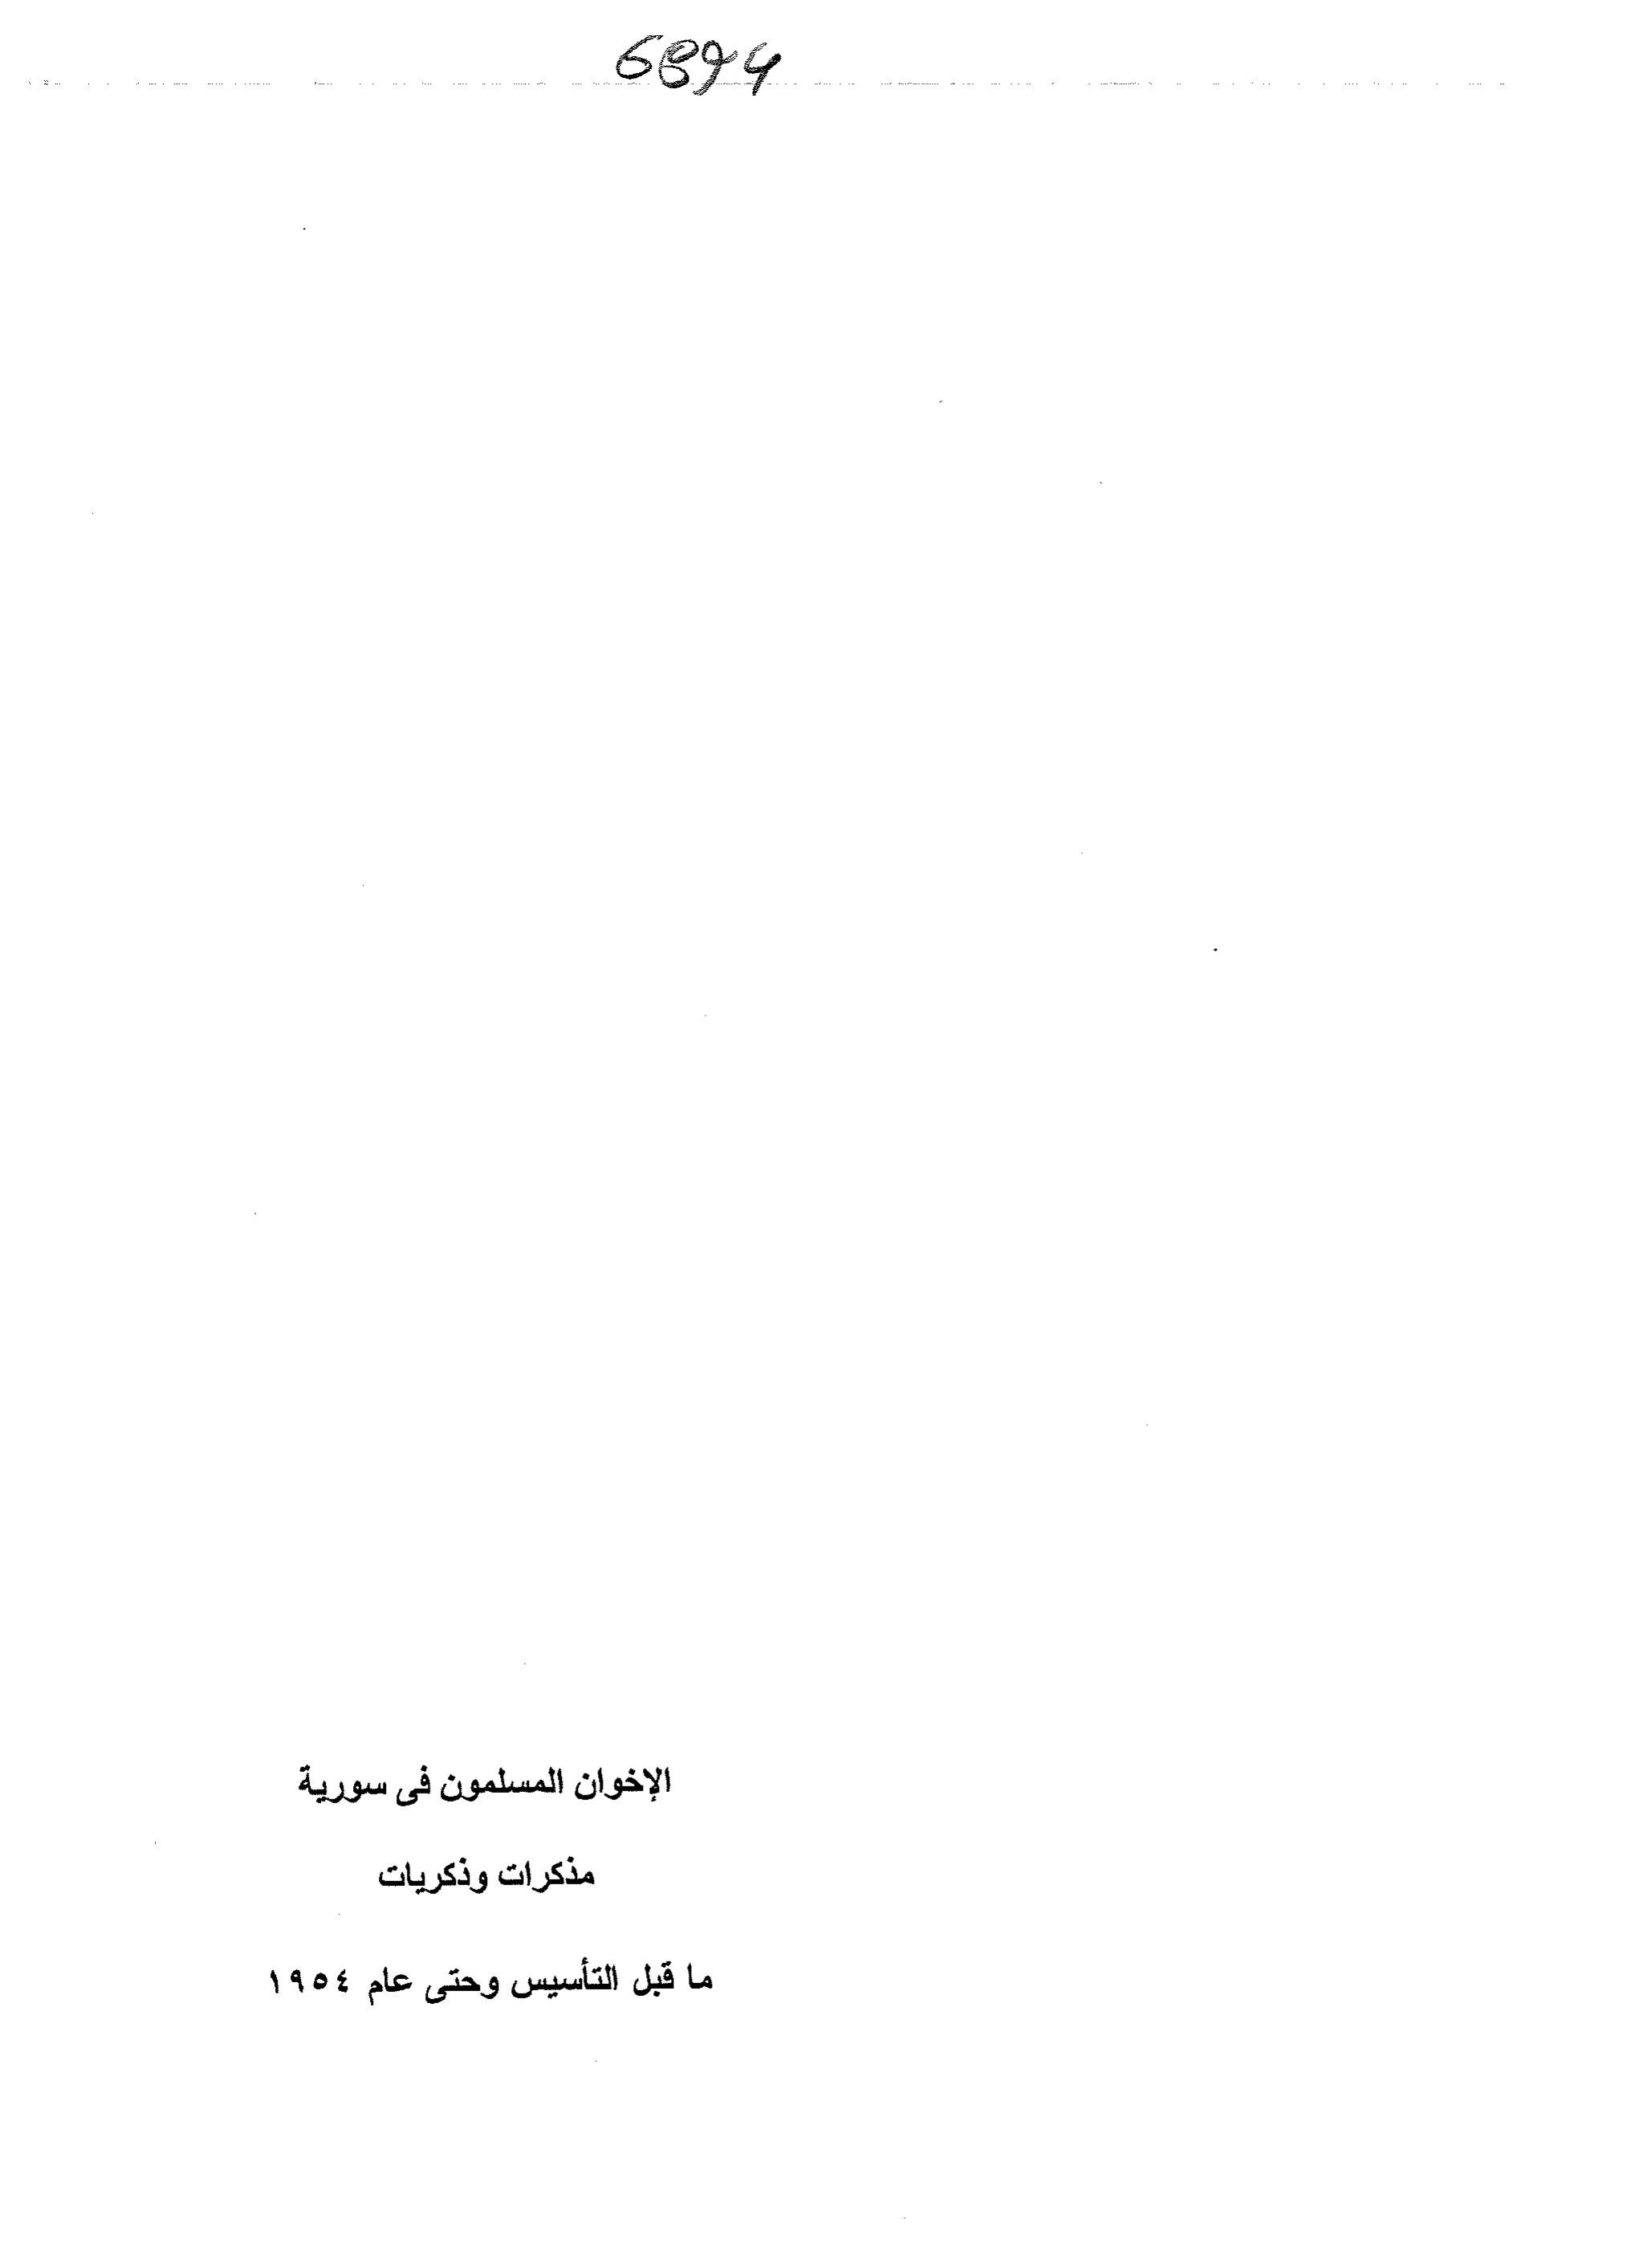 6894
الإخوان المسلمون فى سورية
مذكرات وذكريات
ما قبل التأسيس وحتى عام ١٩٥٤